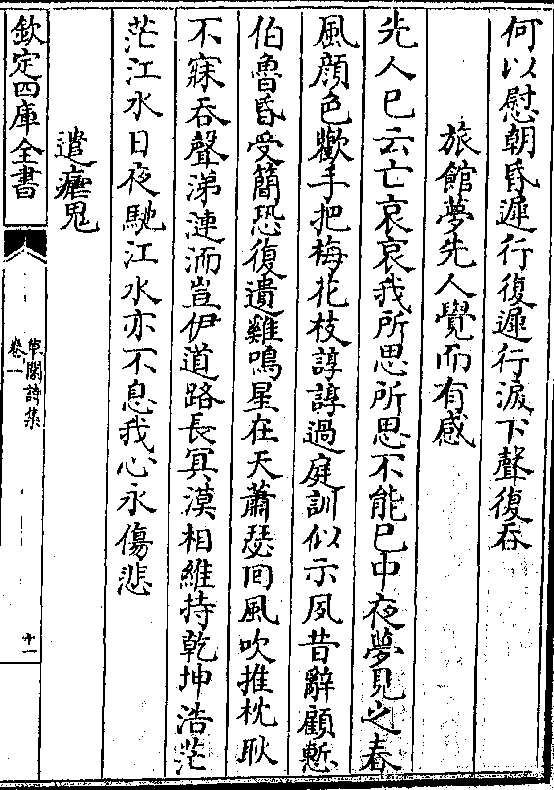 何以慰朝昏遲行復遲行淚下聲復吞
旅館夢先人覺而有感
先人已云亡哀哀我所思所思不能已中夜夢見之春
風顔色歡手把梅花枝諄諄過庭訓似示夙昔辭顧慙
伯魯昏受簡恐復遺雞鳴星在天蕭瑟回風吹推枕耿
不寐吞聲涕漣洏豈伊道路長冥漠相維持乾坤浩茫
茫江水日夜馳江水亦不息我心永傷悲
遣瘧鬼
欽定四庫全書
草閣詩集
卷一
十一